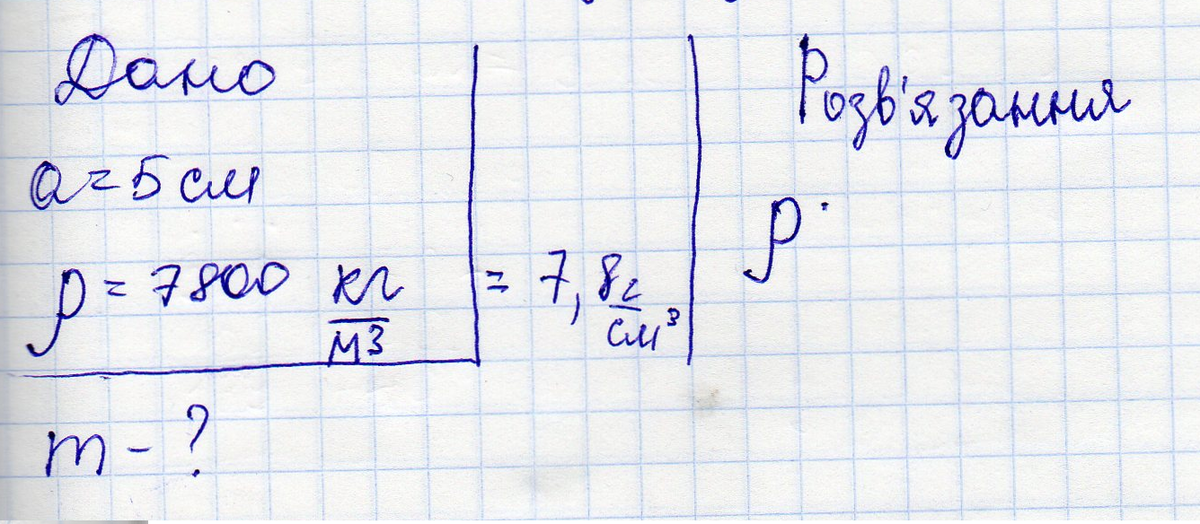 Дано
a = 5 см
ρ = 7800 кг/м³ = 7,8 г/см³
m - ?
Розв'язання
ρ